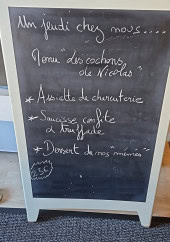 Un jeudi chez nous....
Menu "des cochons
de Nicolas"
* Assiette de charcuterie
* Saucisse confite
et truffade
* Dessert de nos "mémés"